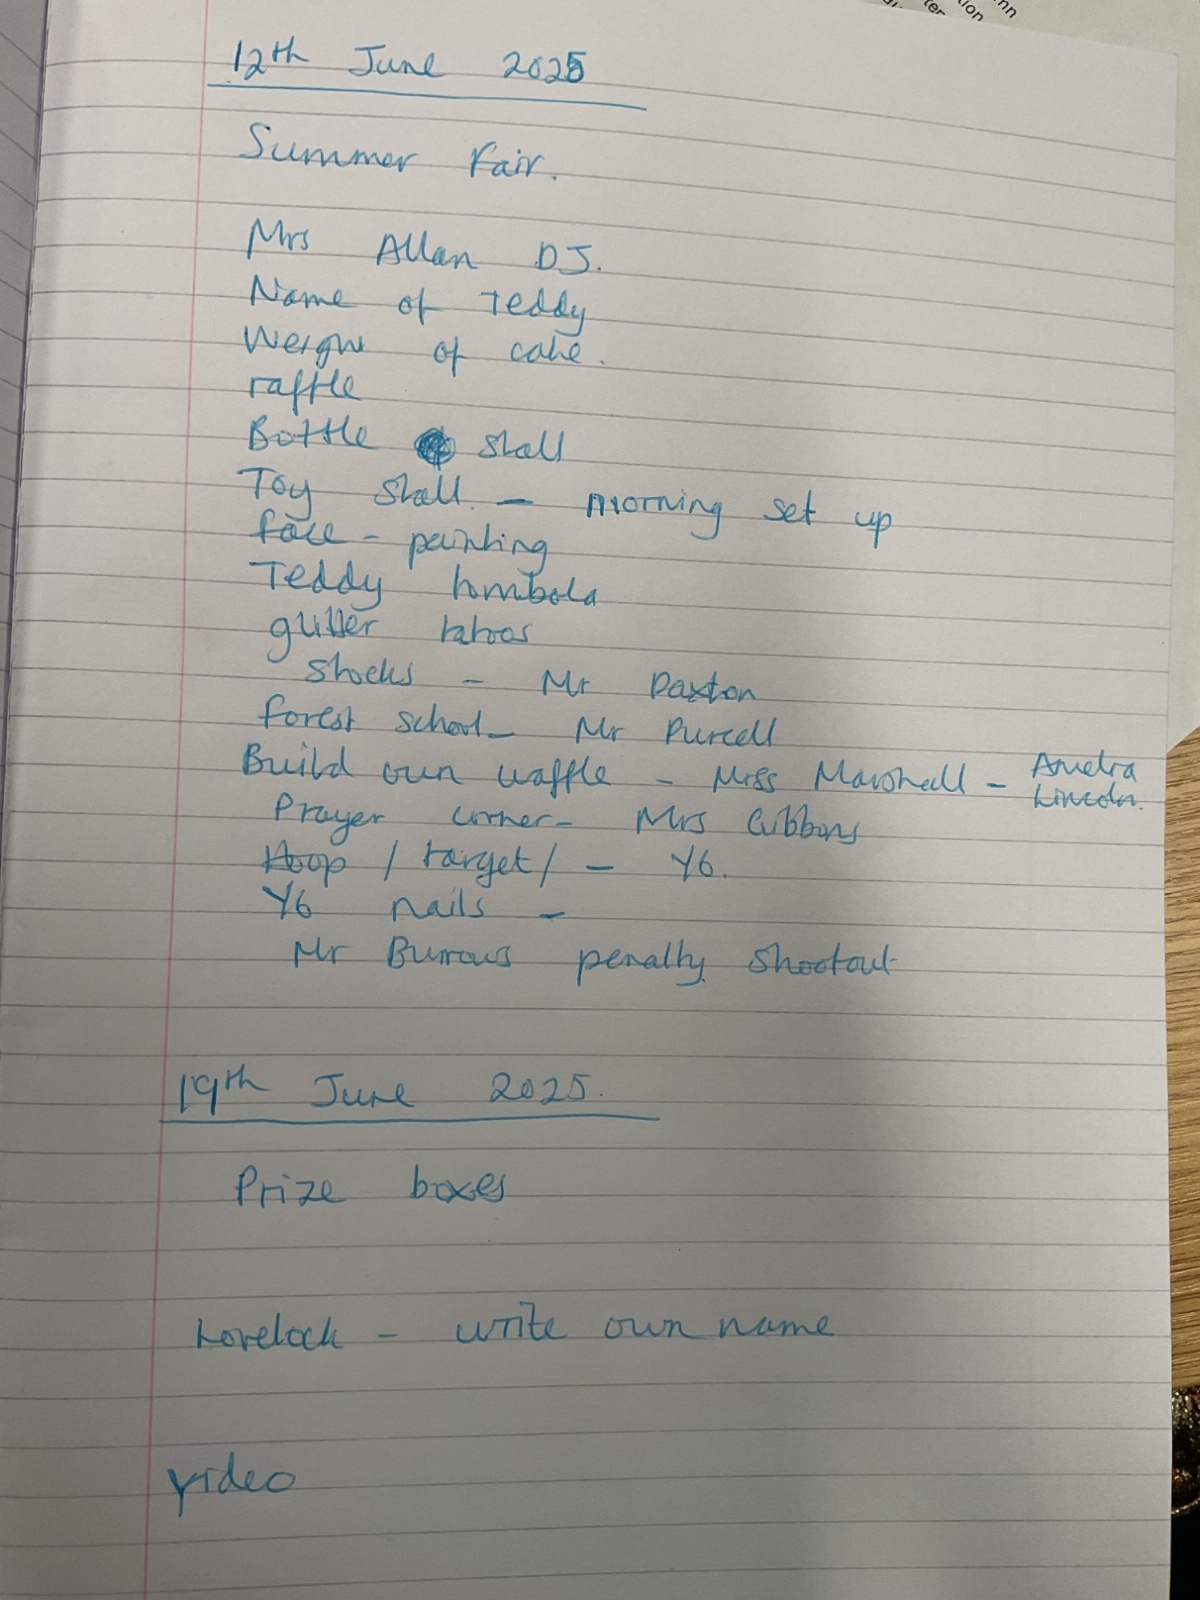 nn
tion
ter
12th June 2025
Summer Fair.
Mrs Allan DJ.
Name of Teddy
Weight of cake.
raffle
Bottle stall
Toy stall. - morning set up
face - painting
Teddy tombola
glitter tatoos
Stocks - Mr Paxton
forest school - Mr Purcell
Build own waffle - Miss Marshall - Amelia
Lincoln.
Prayer corner - Mrs Gibbons
Hoop / target / - Y6.
Y6 nails -
Mr Burrows penalty shootout
19th June 2025.
Prize boxes
Lovelock - write own name
video